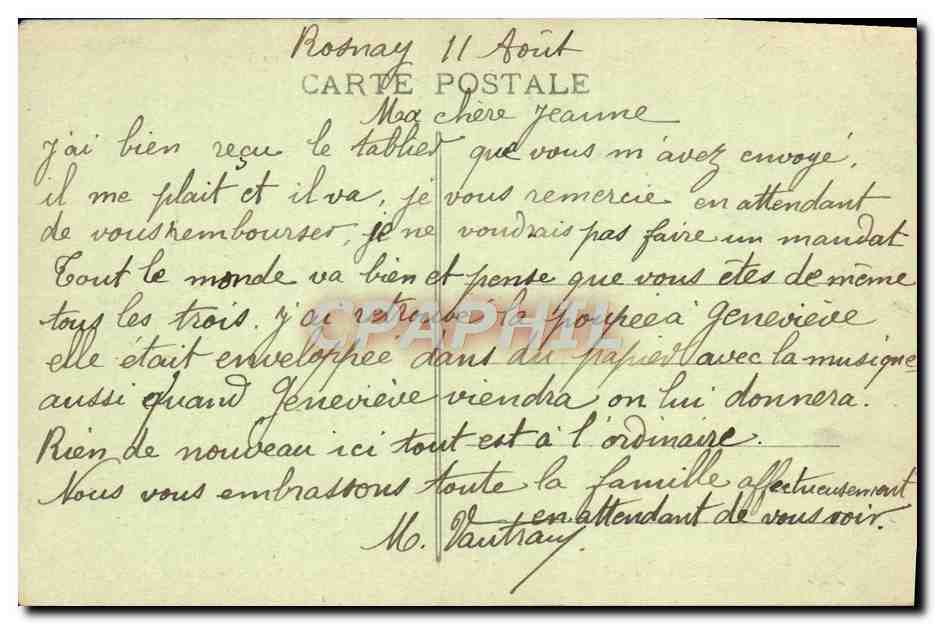 Rosnay 11 Août
CARTE POSTALE
Ma chère Jeanne
J'ai bien reçu le tablier que vous m'avez envoyé,
il me plait et il va, je vous remercie en attendant
de vous rembourser, je ne voudrais pas faire un mandat
Tout le monde va bien et pense que vous êtes de même
tous les trois. J'ai retrouvé la poupée à Geneviève
CPAPHIL
elle était enveloppée dans du papier avec la musique
aussi quand Geneviève viendra on lui donnera.
Rien de nouveau ici tout est à l'ordinaire.
Nous vous embrassons toute la famille affectueusement
en attendant de vous voir.
M.